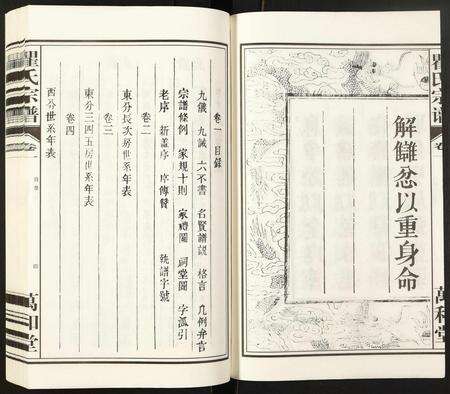 瞿氏宗譜
卷
萬和堂
解讎忿以重身命
卷一 目錄
九儀 九誡 六不書 名賢譜説 格言 凡例弁言
宗譜條例 家規十則 家禮圖 祠堂圖 字派引
老序 新蓋序 序傳贊 統譜字號
卷二
東分長次房世系年表
卷三
東分三四五房世系年表
卷四
西分世系年表
瞿氏宗譜
卷一
目錄
萬和堂